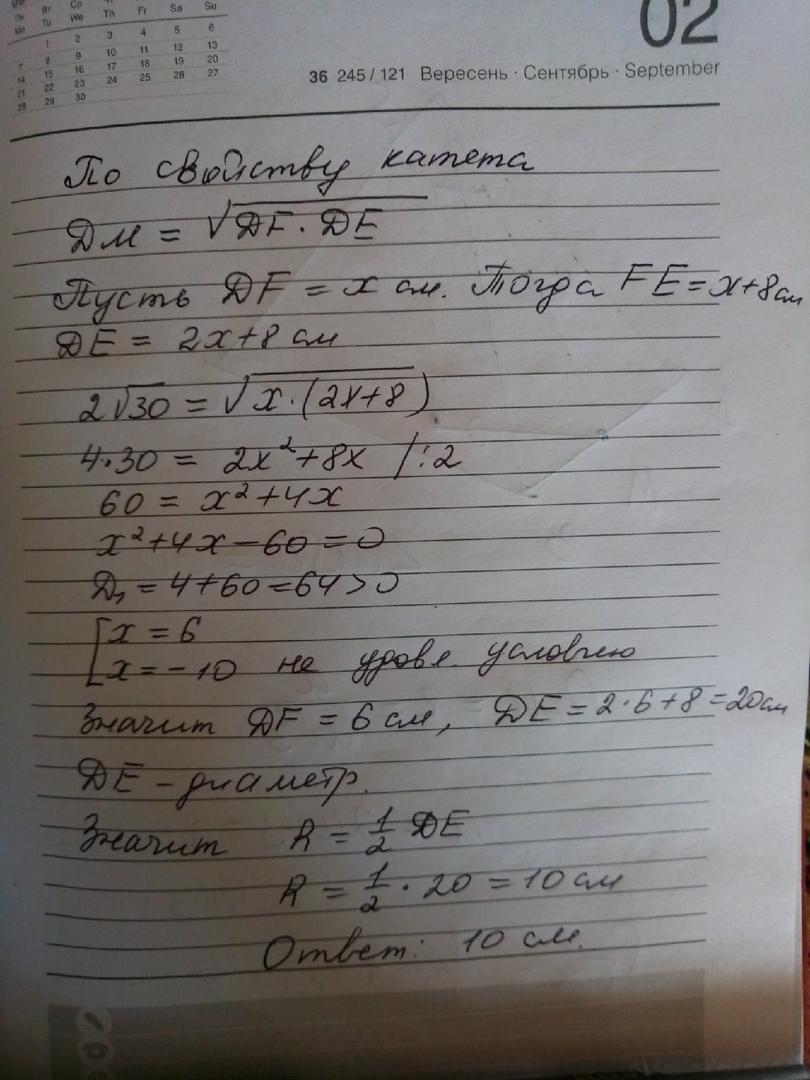 Пн Вт Ср Чт
Mo Tu We Th Fr Sa Su
1 2 3 4 5 6
7 8 9 10 11 12 13
14 15 16 17 18 19 20
21 22 23 24 25 26 27
28 29 30
02
36 245 / 121 Вересень · Сентябрь · September
По свойству катета
ДМ = √DF · DE
Пусть DF = x см. Тогда FE = x+8 см
DE = 2x+8 см
2√30 = √x·(2x+8)
4·30 = 2x²+8x |:2
60 = x²+4x
x²+4x-60=0
D₁ = 4+60=64>0
[x = 6
x = -10 не удовл. условию
Значит DF = 6 см, DE = 2·6+8=20см
DE – диаметр.
Значит R = 1/2 DE
R = 1/2 · 20 = 10 см
Ответ: 10 см.